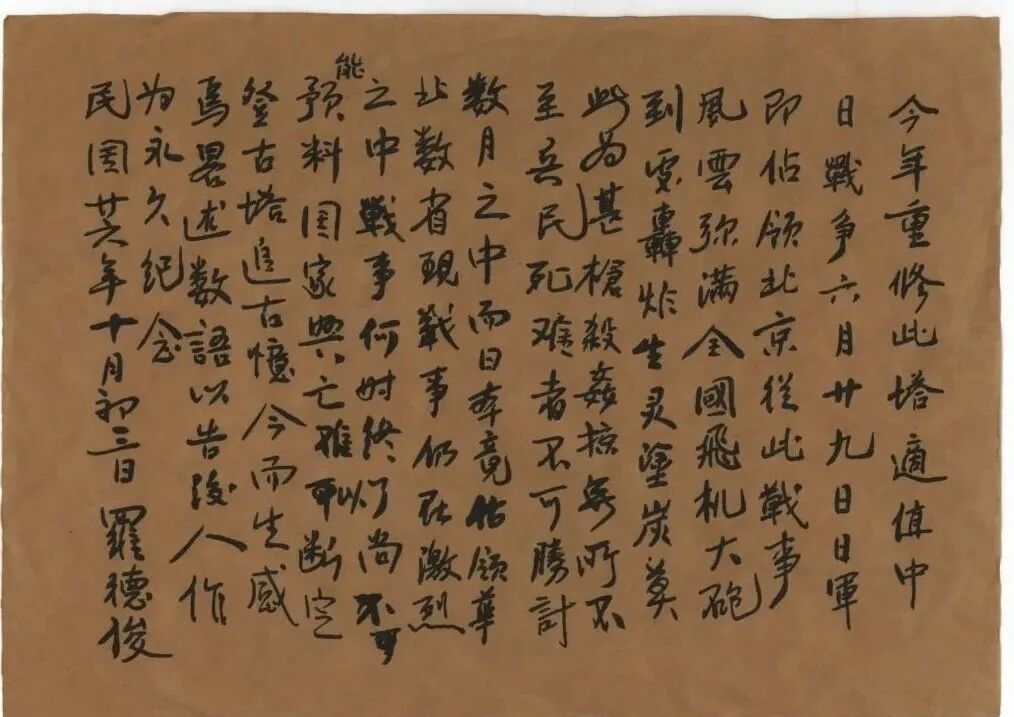 今年重修此塔適值中
日戰爭六月廿九日日軍
即佔領北京從此戰事
風雲弥满全國飛机大砲
到处轟炸生灵塗炭莫
此為甚槍殺姦掠無所不
至兵民死难者不可勝計
数月之中而日本竟佔領華
北数省現戰事仍在激烈
之中戰事何时終了尚不可
能預料国家興亡难可以断定
登古塔追古憶今而生感
焉畧述数語以告後人作
为永久紀念
民国廿六年十月初三日羅德俊